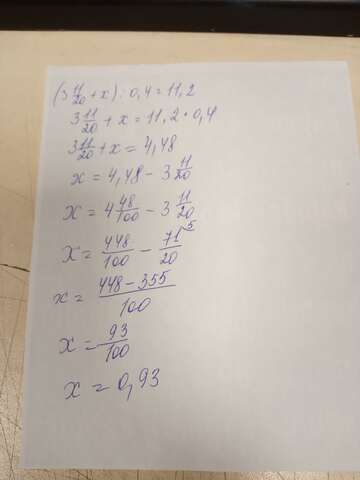 (3 11/20 + x) : 0,4 = 11,2
3 11/20 + x = 11,2 · 0,4
3 11/20 + x = 4,48
x = 4,48 - 3 11/20
x = 4 48/100 - 3 11/20
x = 448/100 - 71/20 ⁵
x = (448 - 355)/100
x = 93/100
x = 0,93